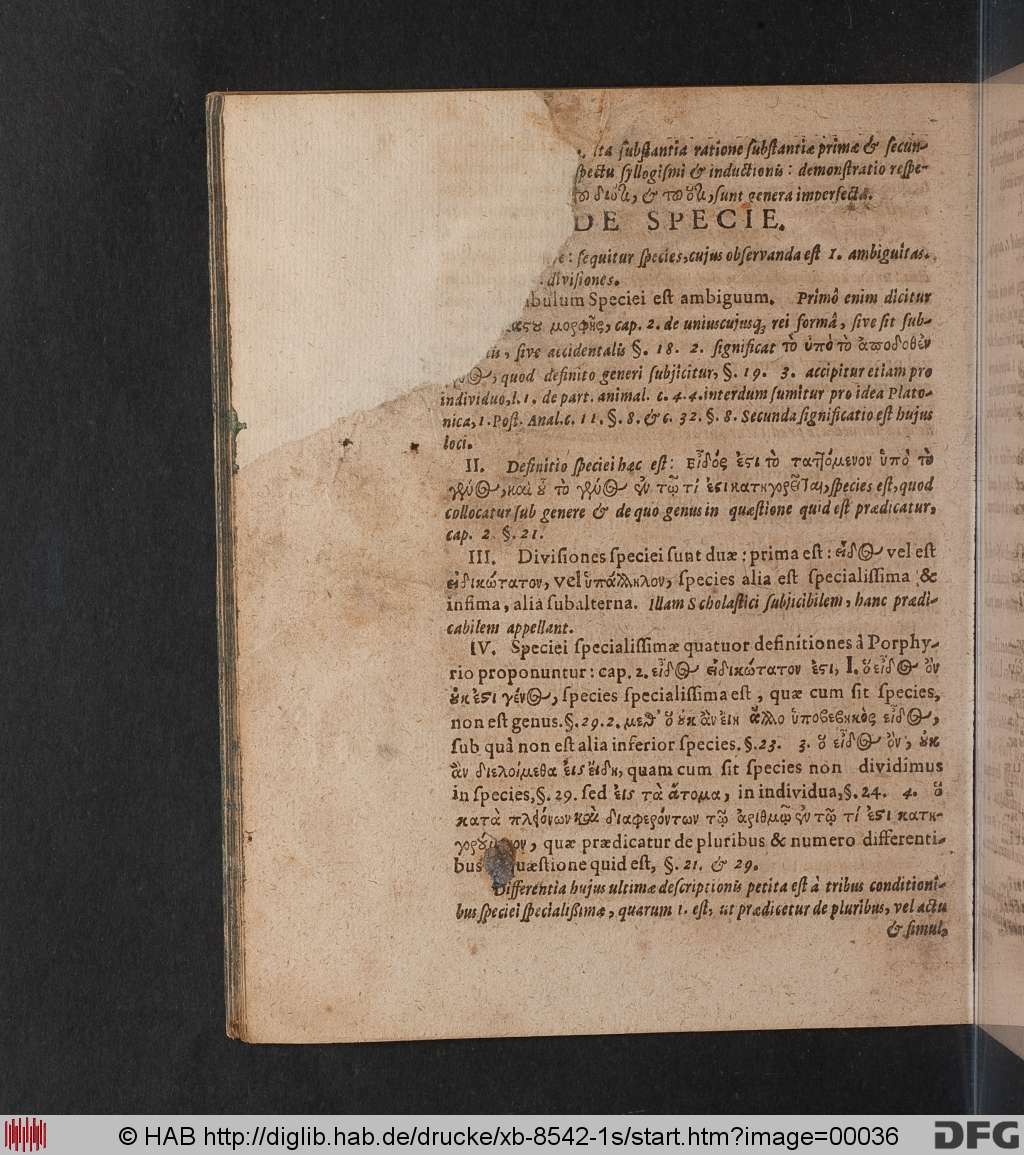 ita substantia ratione substantiæ primæ & secun-
spectu syllogismi & inductionis: demonstratio respe-
διότι, & τοῦ ὅτι, sunt genera imperfecta.
DE SPECIE.
sequitur species, cujus observanda est 1. ambiguitas.
divisiones.
bulum Speciei est ambiguum. Primò enim dicitur
μορφῆς, cap. 2. de uniuscujusq; rei formâ, sive sit sub-
sive accidentalis §. 18. 2. significat τὸ ὑπὸ τὸ ἀποδοθὲν
quod definito generi subjicitur, §. 19. 3. accipitur etiam pro
individuo, l. 1. de part. animal. c. 4. 4. interdum sumitur pro idea Plato-
nica, 1. Post. Anal. c. 11. §. 8. & c. 32. §. 8. Secunda significatio est hujus
loci.
II. Definitio speciei hæc est: εἶδός ἐστι τὸ ταττόμενον ὑπὸ τὸ
γένος, καὶ οὗ τὸ γένος ἐν τῷ τί ἐστι κατηγορεῖται, species est, quod
collocatur sub genere & de quo genus in quæstione quid est prædicatur,
cap. 2 §. 21.
III. Divisiones speciei sunt duæ: prima est: εἶδος vel est
εἰδικώτατον, vel ὑπάλληλον, species alia est specialissima &
infima, alia subalterna. Illam Scholastici subjicibilem, hanc prædi-
cabilem appellant.
IV. Speciei specialissimæ quatuor definitiones à Porphy-
rio proponuntur: cap. 2. εἶδος εἰδικώτατον ἐστι, 1. ὃ εἶδος ὂν
οὐκ ἐστι γένος, species specialissima est, quæ cum sit species,
non est genus. §. 29. 2. μεθ' ὃ οὐκ ἂν εἴη ἄλλο ὑποβεβηκὸς εἶδος,
sub quâ non est alia inferior species. §. 23. 3. ὃ εἶδος ὂν, οὐκ
ἂν διελοίμεθα εἰς εἴδη, quam cum sit species non dividimus
in species, §. 29. sed εἰς τὰ ἄτομα, in individua, §. 24. 4. ὃ
κατὰ πλειόνων καὶ διαφερόντων τῷ ἀριθμῷ ἐν τῷ τί ἐστι κατη-
γορούμενον, quæ prædicatur de pluribus & numero differenti-
bus quæstione quid est, §. 21. & 29.
Differentia hujus ultimæ descriptionis petita est à tribus conditioni-
bus speciei specialissimæ, quarum 1. est, ut prædicetur de pluribus, vel actu
& simul,
© HAB http://diglib.hab.de/drucke/xb-8542-1s/start.htm?image=00036
DFG